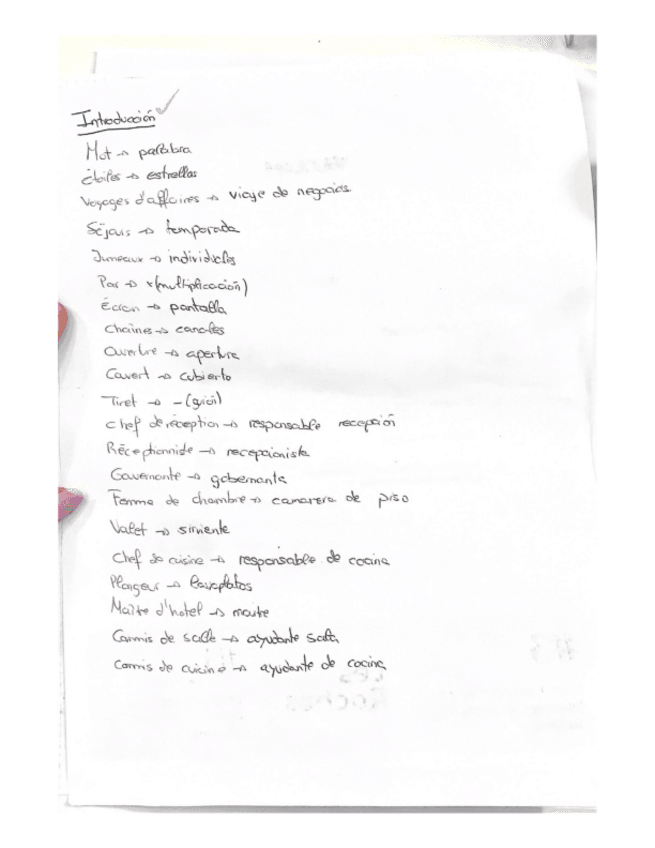 Introducción
Mot → palabra
étoiles → estrellas
Voyages d'affaires → viaje de negocios
Séjours → temporada
Jumeaux → individuales
Par → x(multiplicación)
Écran → pantalla
Chaîne → canales
Ouvertre → apertura
Couvert → cubierto
Tiret → - (guión)
chef de réception → responsable recepción
Réceptionniste → recepcionista
Gouvernante → gobernanta
Femme de chambre → camarera de piso
Valet → sirviente
Chef de cuisine → responsable de cocina
Plongeur → lavaplatos
Maître d'hotel → maitre
Commis de salle → ayudante sala
Commis de cuisine → ayudante de cocina